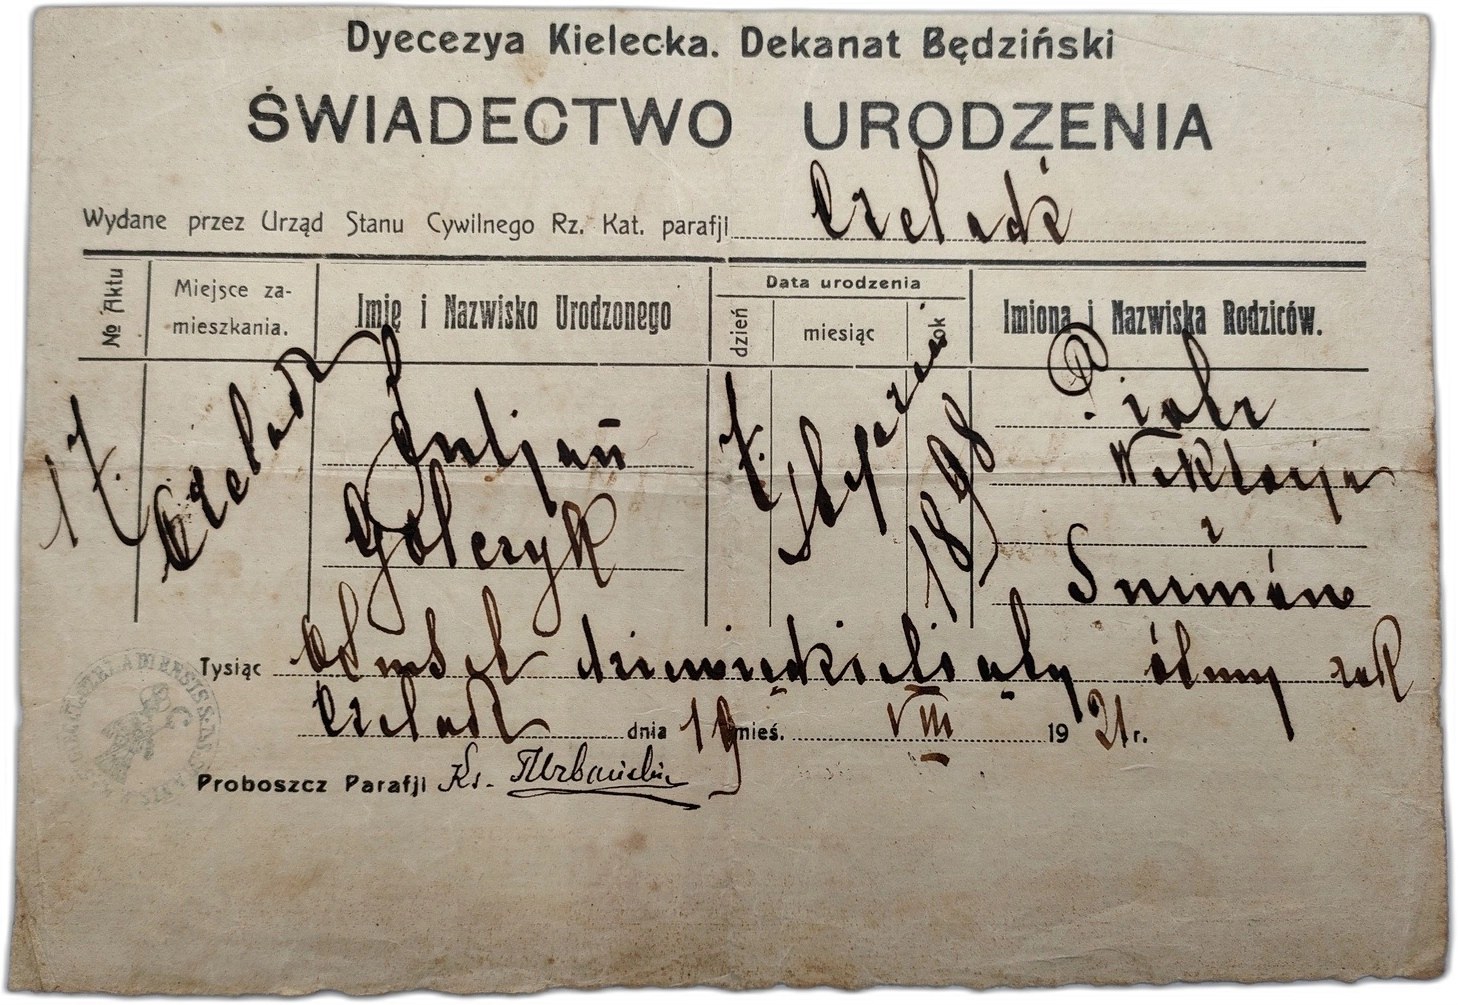 Dyecezya Kielecka. Dekanat Będziński
ŚWIADECTWO URODZENIA
Wydane przez Urząd Stanu Cywilnego Rz. Kat. parafji Czeladź
№ Aktu
Miejsce za-
mieszkania.
Imię i Nazwisko Urodzonego
Data urodzenia
dzień
miesiąc
rok
Imiona i Nazwiska Rodziców.
Czeladź
Juljan
Golczyk
1898
Piotr
Wiktorja
z
Surmów
Tysiąc ośmset dziewięćdziesiąty ósmy rok
Czeladź dnia 19 mieś. VIII 1921 r.
Proboszcz Parafji Ks.